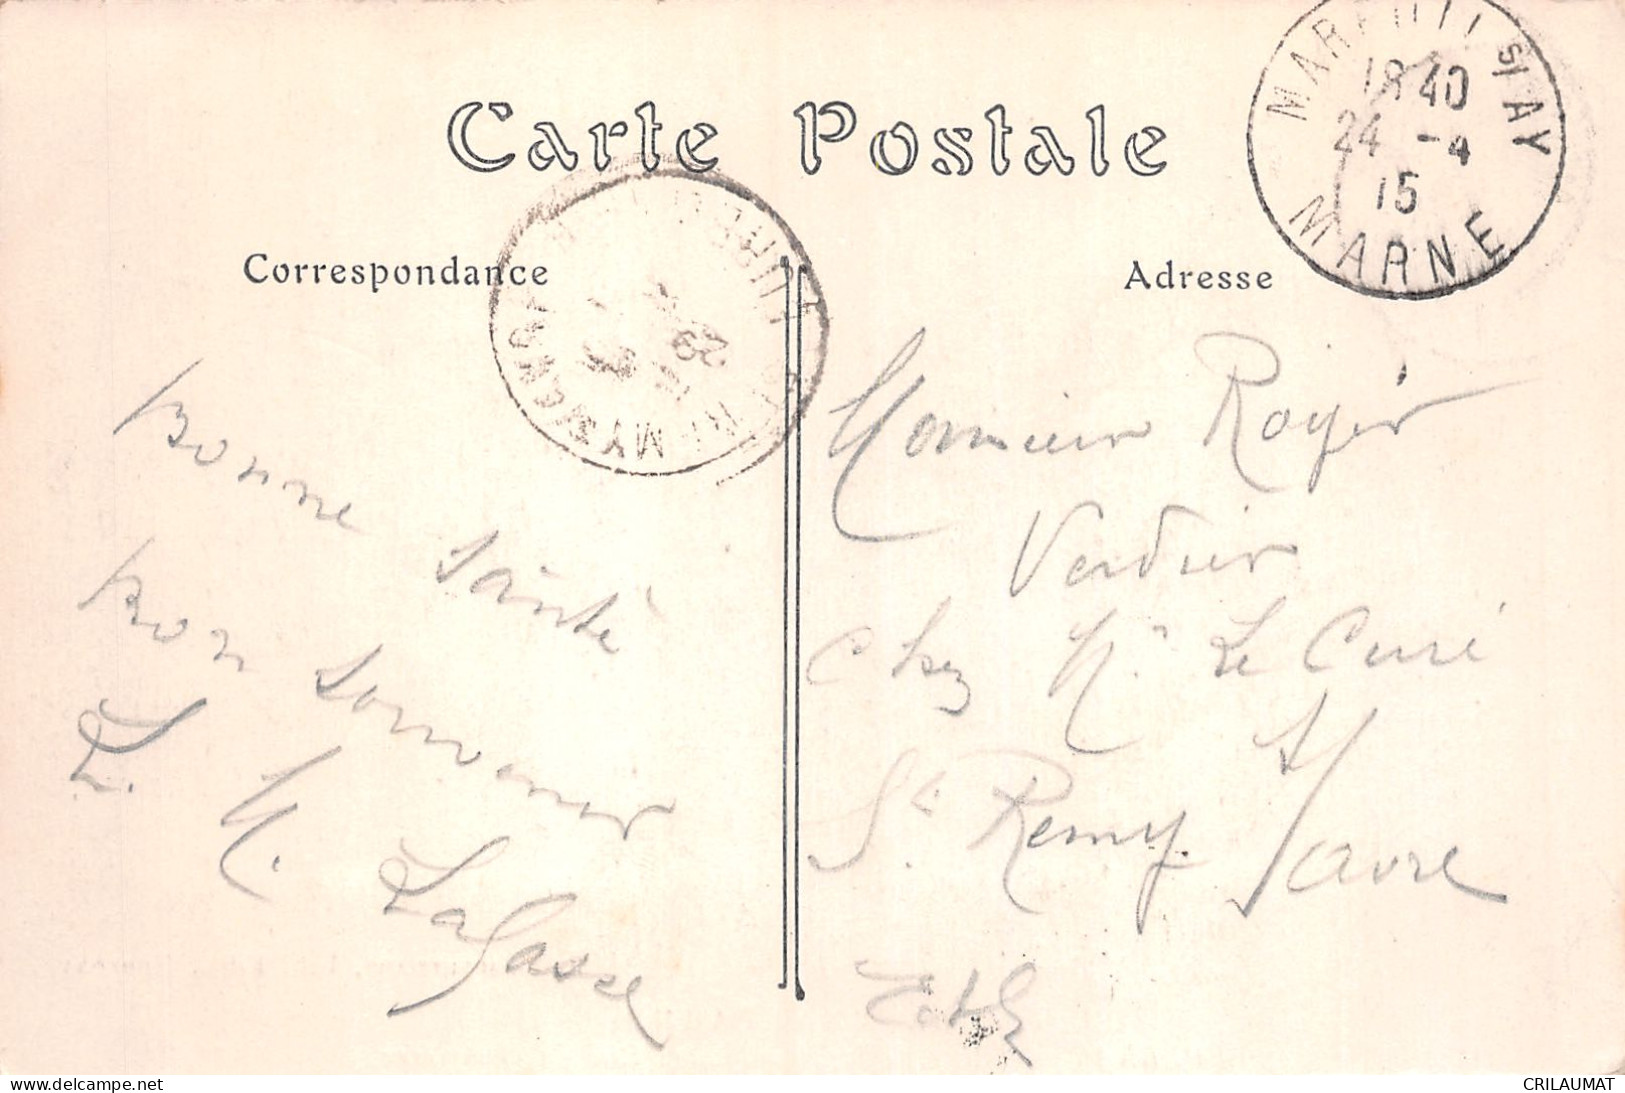 Carte Postale
MAREUIL S/ AY
18 40
24 - 4
15
MARNE
Correspondance
Adresse
Bonne Sainte
Bon Souvenir
L. M. Lagasse
29
Monsieur Roger
Verdier
Chez Mr Le Curé
St. Remy. Havre
CRILAUMAT